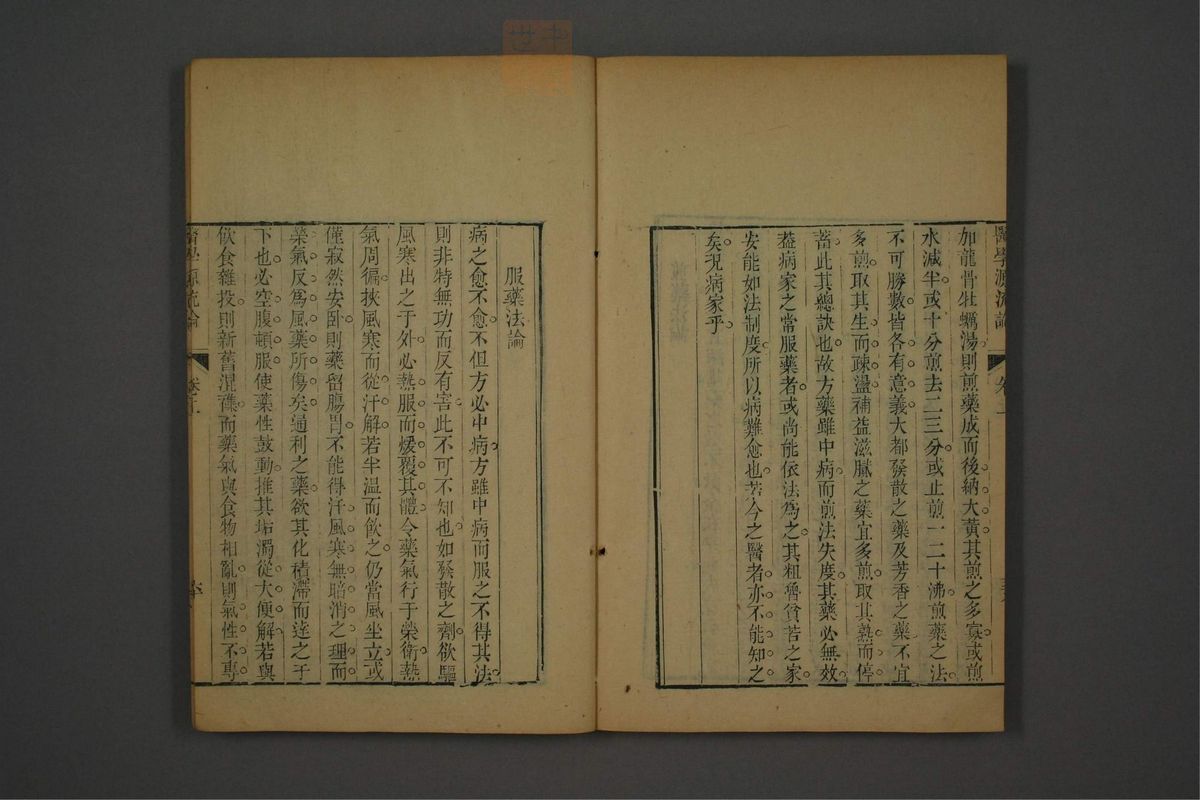 醫學源流論
卷上
如龍骨牡蠣湯則煎藥成而後納大黃其煎之多寡或煎
水減半或十分煎去二三分或止煎一二十沸煎藥之法
不可勝數皆各有意義大都發散之藥及芳香之藥不宜
多煎取其生而疎盪補益滋膩之藥宜多煎取其熟而停
蓄此其總訣也故方藥雖中病而煎法失度其藥必無效
葢病家之常服藥者或尚能依法為之其粗魯貧苦之家
安能如法制度所以病難愈也若今之醫者亦不能知之
矣況病家乎
服藥法論
病之愈不愈不但方必中病方雖中病而服之不得其法
則非特無功而反有害此不可不知也如發散之劑欲驅
風寒出之于外必熱服而煖覆其體令藥氣行于榮衛熱
氣周徧挾風寒而從汗解若半温而飲之仍當風坐立或
僅寂然安臥則藥留腸胃不能得汗風寒無暗消之理而
藥氣反為風藥所傷矣通利之藥欲其化積滯而達之于
下也必空腹頓服使藥性鼓動推其垢濁從大便解若與
飲食雜投則新舊混雜而藥氣與食物相亂則氣性不專
醫學源流論
卷上